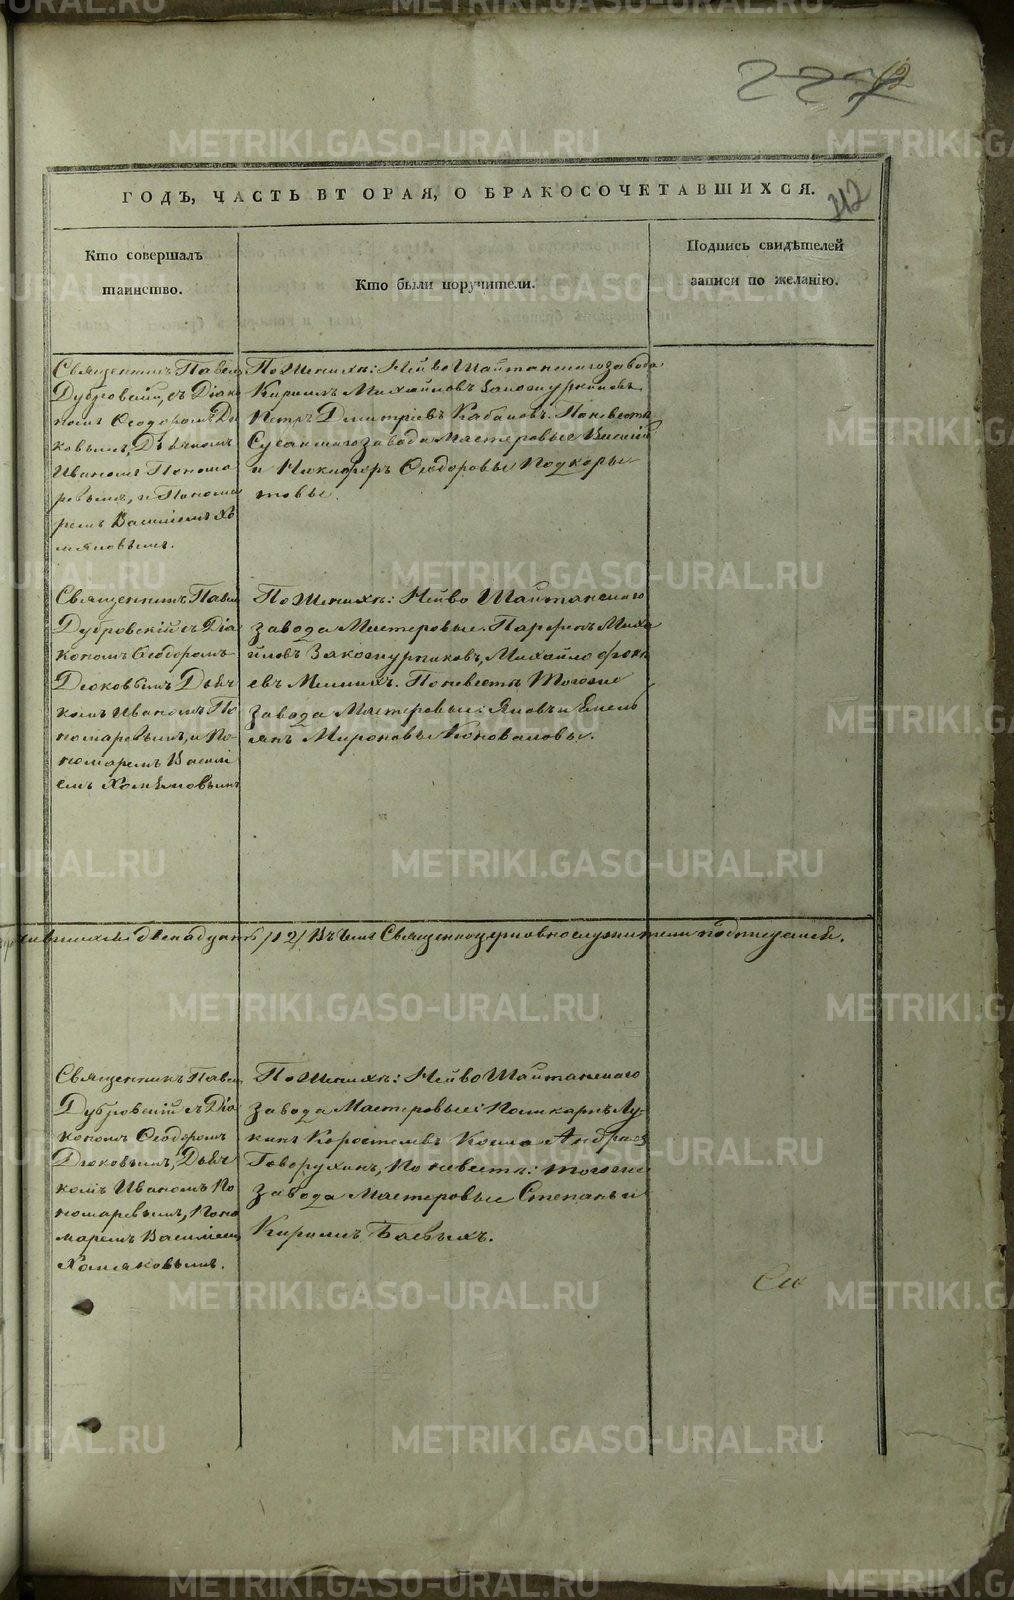 227
12
ГОДЪ, ЧАСТЬ ВТОРАЯ, О БРАКОСОЧЕТАВШИХСЯ.
Кто совершалъ
таинство.
Кто были поручители.
Подпись свидѣтелей
записи по желанію.
Священникъ Павелъ
Дубровскій, съ Діако
номъ Ѳеодоромъ Дю
ковымъ, Дьячкомъ
Иваномъ Понома
ревымъ, и Понома
ремъ Василіемъ Хо
мяковымъ.
По Женихѣ: Нейво Шайтанскаго завода
Кирилъ Михайловъ
Петръ Дмитріевъ Кабановъ. По невестѣ
Сусанскаго завода Мастеровые Василій
и Никифоръ Ѳеодоровы Подкоры
товы.
Священникъ Павелъ
Дубровскій съ Діа
кономъ Ѳеодоромъ
Дюковымъ Дьяч
комъ Иваномъ По
номаревымъ, и По
номаремъ Васил
емъ Хомяковымъ
По Женихѣ: Нейво Шайтанскаго
завода Мастеровые. Парфенъ Миха
йловъ Закожурниковъ, Михайло
евъ . По невестѣ тогоже
завода Мастеровые: Яковъ и Емель
янъ Мироновы Коноваловы.
двенадцать /12/ Въ чемъ Священноцерковнослужители подписуемся.
Священникъ Павелъ
Дубровскій съ Діа
кономъ Ѳеодоромъ
Дюковымъ, Дьяч
комъ Иваномъ По
номаревымъ, Поно
маремъ Василіемъ
Хомяковымъ.
По Женихѣ: Нейво Шайтанскаго
завода Мастеровые: Поликарпъ Лу-
кинъ Коростелевъ Козма Андреевъ
Говорухинъ, По невестѣ: тогоже
завода Мастеровые Степанъ и
Кирилъ Баевыхъ.
METRIKI.GASO-URAL.RU